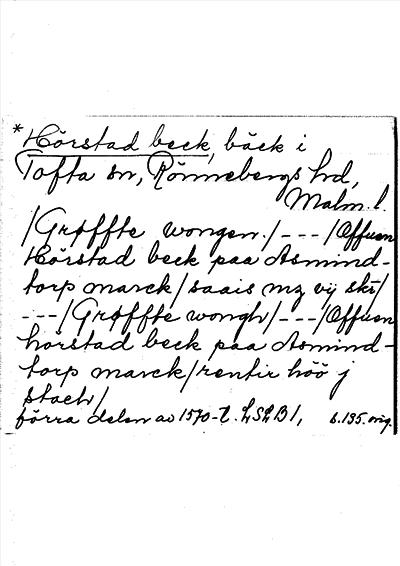 *Hörstad beck, bäck i
Tofta sn, Rönnebergs hrd,
Malm. l.
/Grøffte wongen./---/Offuen
Hörstad beck paa Asmind-
torp marck/saais mz vij skr/
---/Grøffte wongh/---/Offuen
hörstad beck paa Asmind-
torp marck/rentir höö j
stach/
förra delen av 1570-t. LSLB1, s.135.orig.